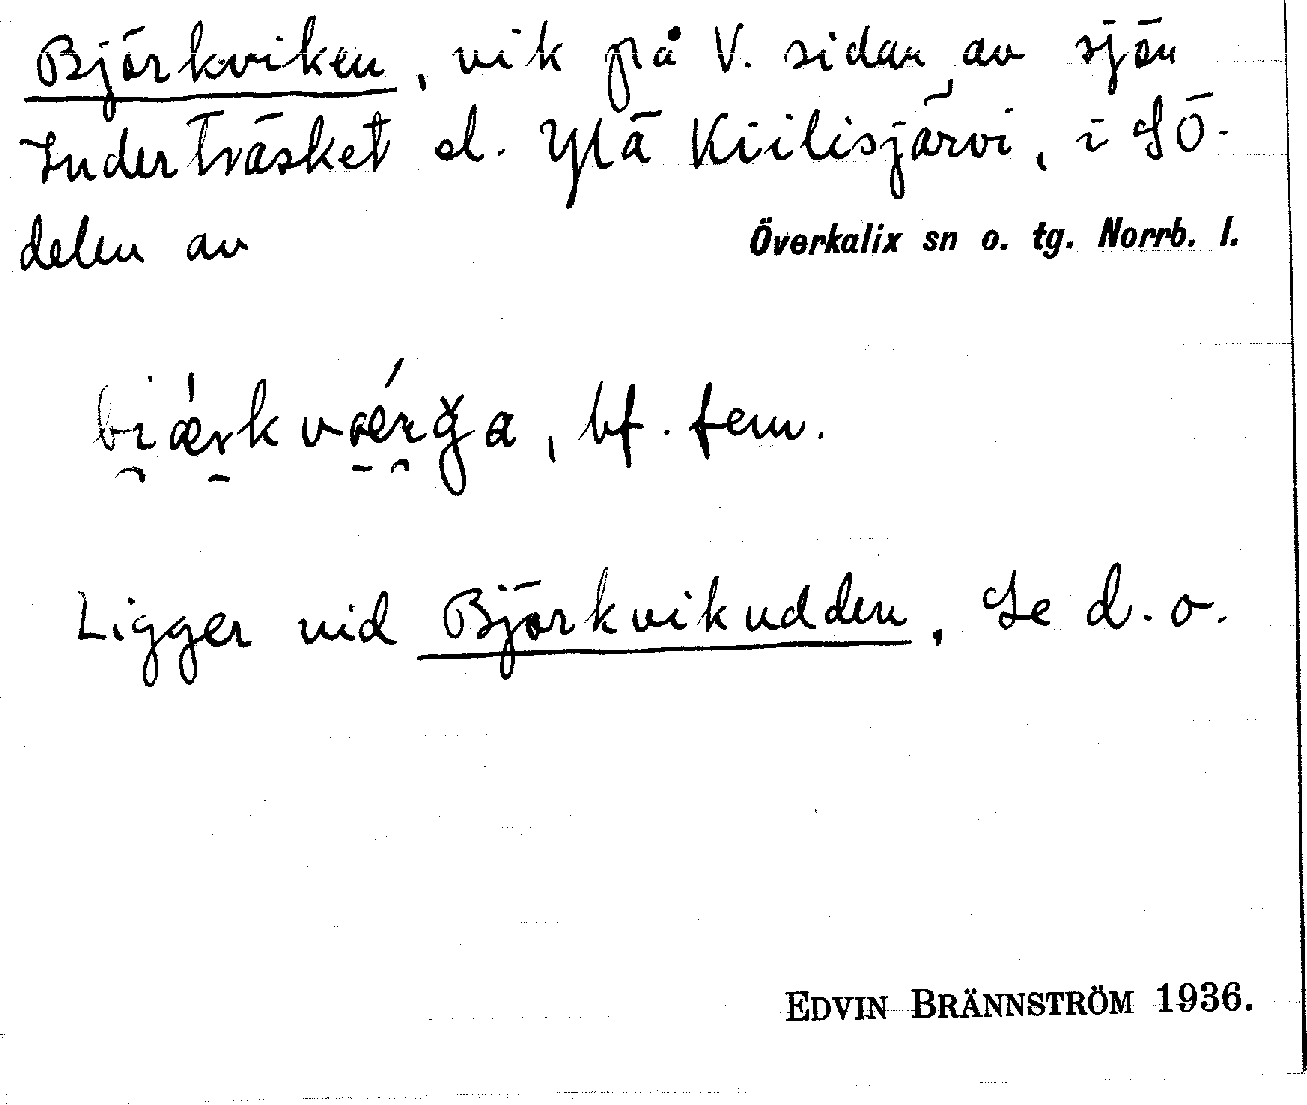 Björkviken, vik på V. sidan av sjön
Inderträsket el. Ylä Kiilisjärvi, i SÖ-
delen av Överkalix sn o. tg. Norrb. l.
bi̯ǽrkvǽrga, bf. fem.
Ligger vid Björkvikudden, Se d. o.
EDVIN BRÄNNSTRÖM 1936.